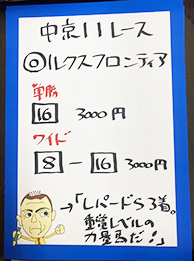 中京11レース
◎ルクスフロンティア
単勝
16 3000円
ワイド
8 - 16 3000円
→「レパードS3着。
重賞レベルの
力量馬だ!」